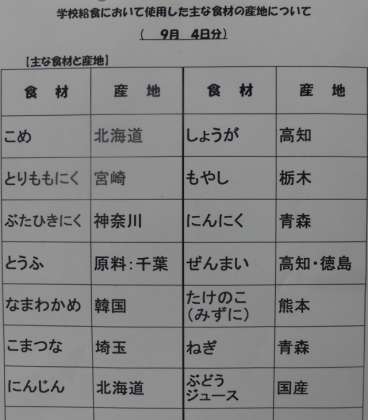 学校給食において使用した主な食材の産地について
( 9月 4日分)
【主な食材と産地】
食 材 産 地 食 材 産 地
こめ 北海道 しょうが 高知
とりももにく 宮崎 もやし 栃木
ぶたひきにく 神奈川 にんにく 青森
とうふ 原料:千葉 ぜんまい 高知・徳島
なまわかめ 韓国 たけのこ 熊本
(みずに)
こまつな 埼玉 ねぎ 青森
にんじん 北海道 ぶどう 国産
ジュース